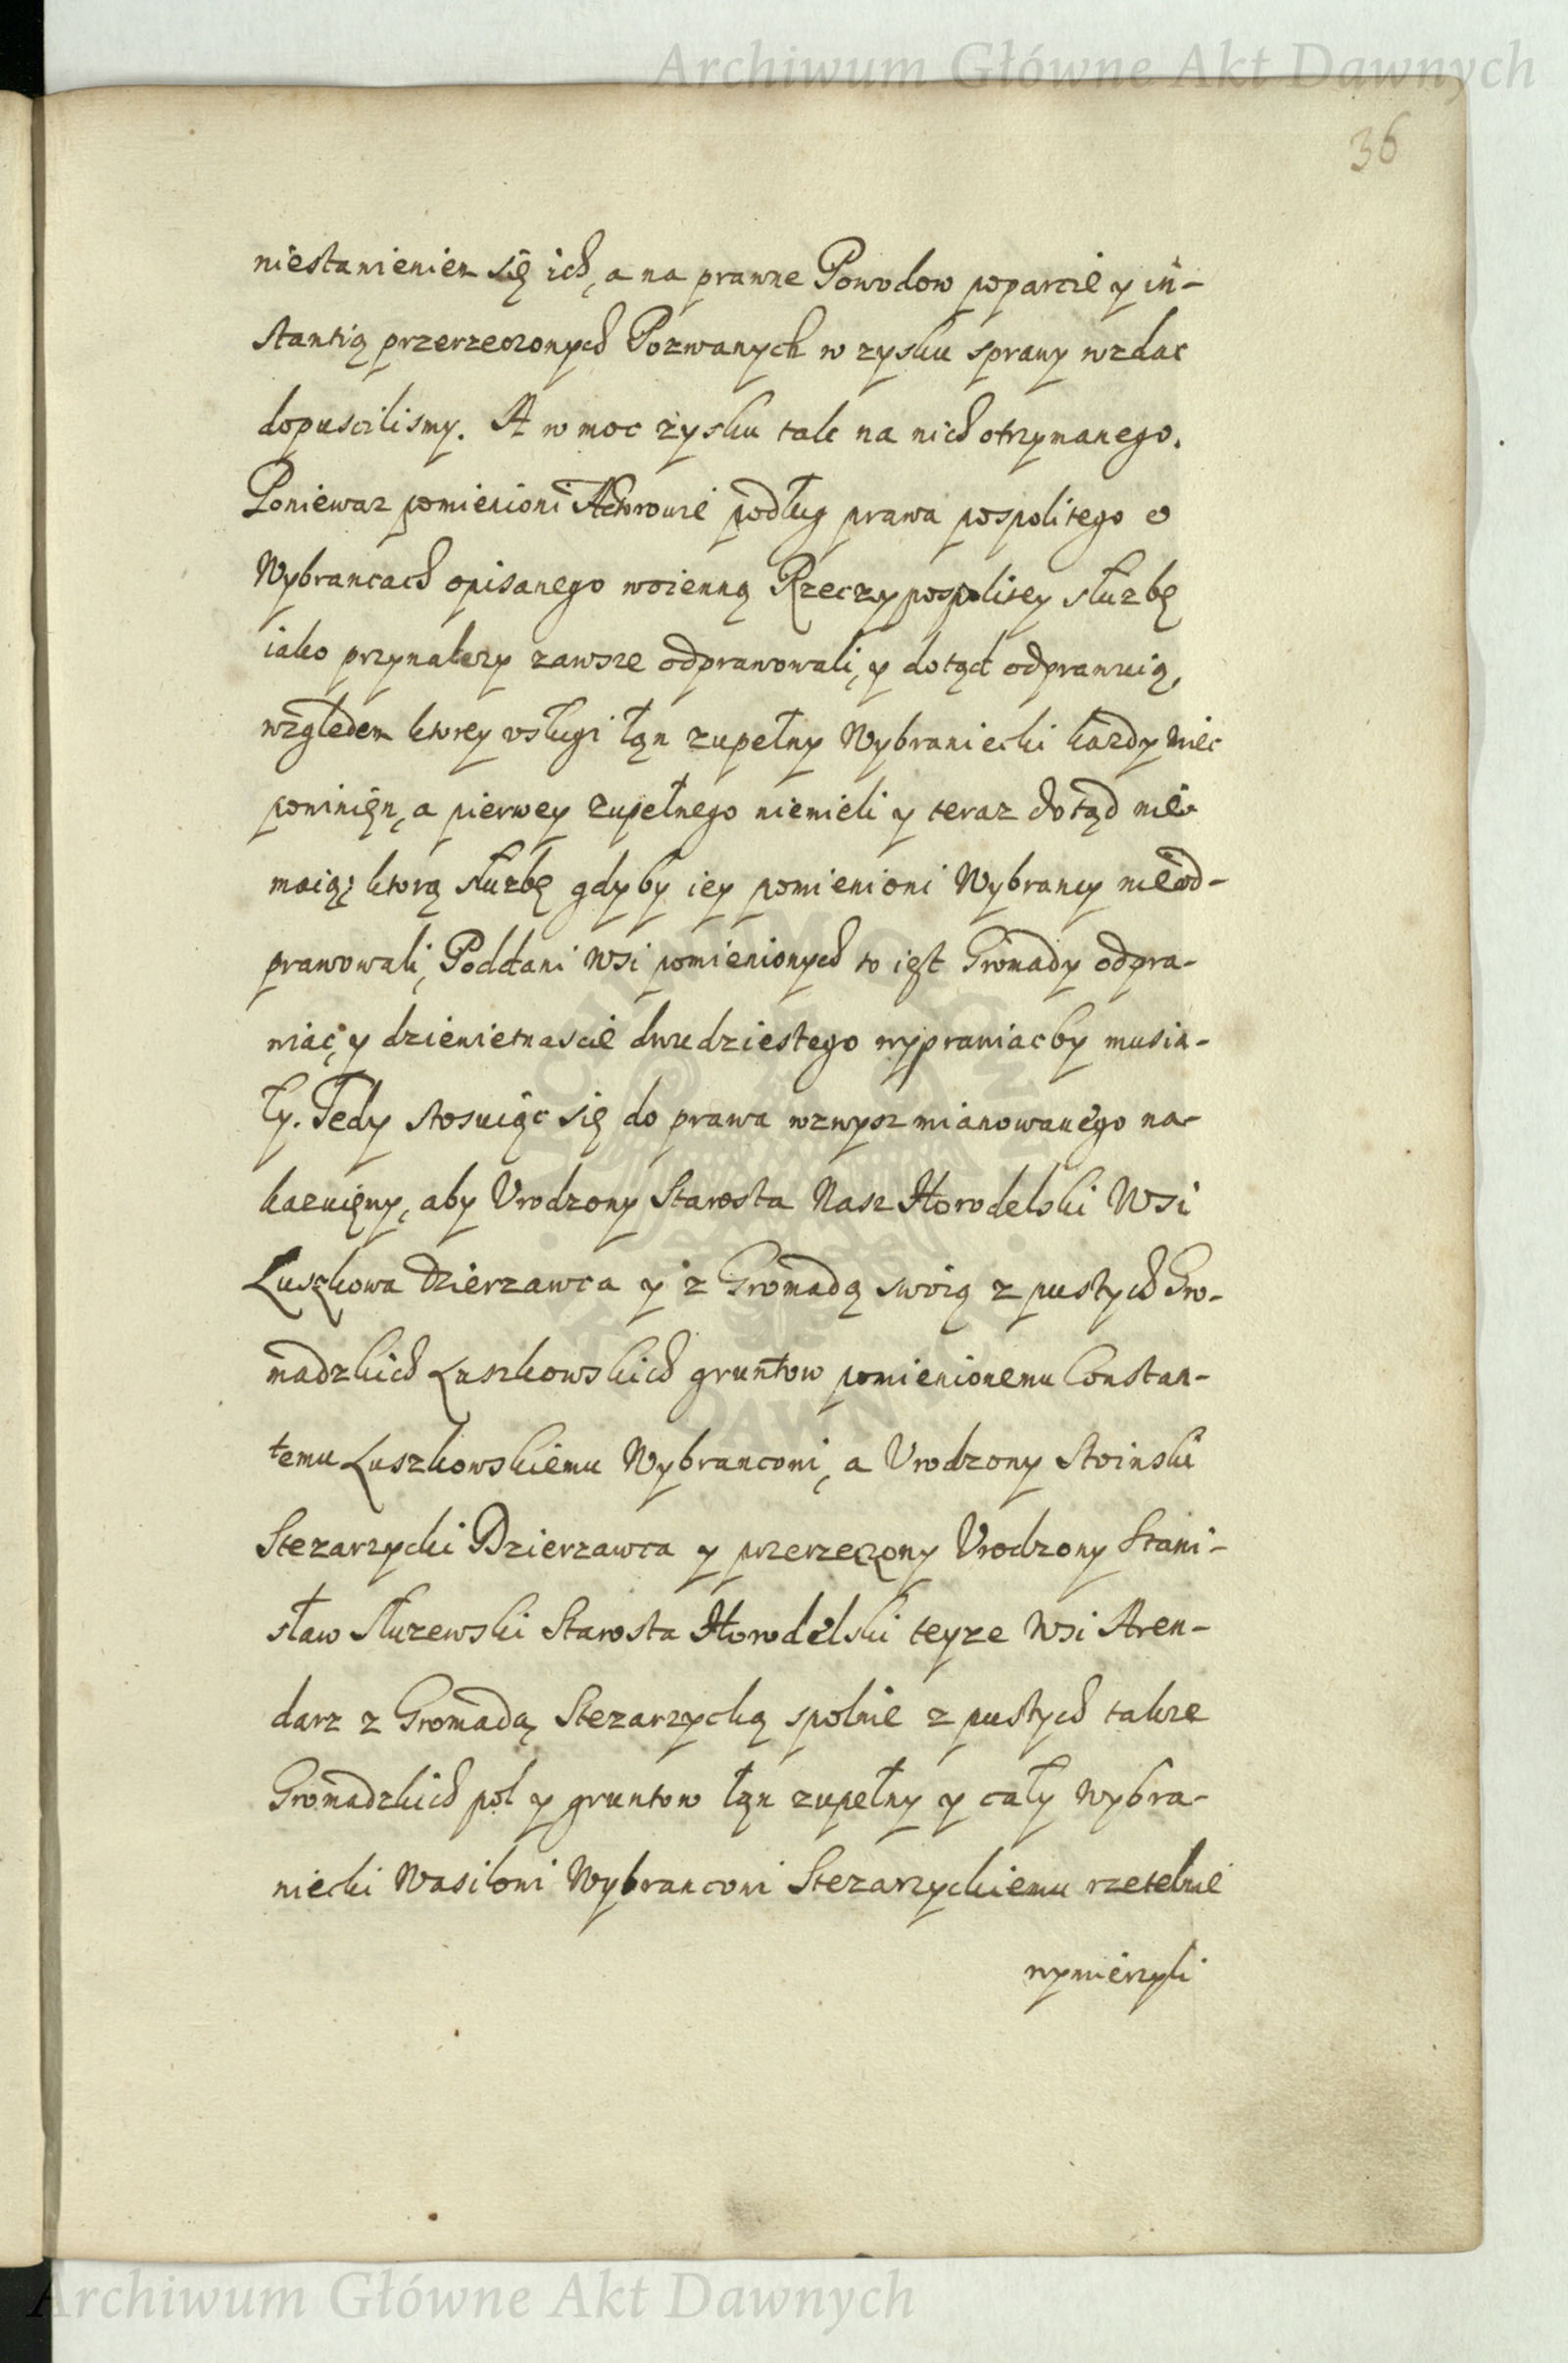 Archiwum Główne Akt Dawnych
36
niestanieniem się ich, a na prawne Powodow poparcie y in-
stantią przerzeczonych Pozwanych w zysku sprawy wzdac
dopuscilismy. A w moc zysku tak na nich otrzymanego.
Poniewaz pomienioni Aktorowie podług prawa pospolitego o
Wybrancach opisanego woienną Rzeczypospolitey służbę
iako przynalezy zawsze odprawowali, y dotąd odprawuią,
względem ktorey usługi łąn zupełny Wybraniecki kazdy miec
powinięn, a pierwey zupełnego niemieli y teraz dotąd nie
maią; ktorą służbę gdyby iey pomienioni Wybrancy nieod-
prawowali, Poddani Wsi pomienionych to iest Gromady odpra-
wiac, y dziewietnascie dwudziestego wyprawiac by musia-
ły. Tedy stosuiąc się do prawa wzwysz mianowanego na-
kazuięmy, aby Vrodzony Starosta Nasz Horodelski Wsi
Łuszkowa Dzierzawca y z Gromadą swoią z pustych Gro-
madzkich Łuszkowskich gruntow pomienionemu Constan-
temu Łuszkowskiemu Wybrancowi, a Vrodzony Stoinski
Stezarzycki Dzierzawca y przerzeczony Vrodzony Stani-
sław Służewski Starosta Horodelski teyze Wsi Aren-
darz z Gromadą Stezarzycką spolnie z pustych takze
Gromadzkich pol y gruntow łąn zupełny y cały Wybra-
niecki Wasilowi Wybrancowi Stezarzyckiemu rzetelnie
wymierzyli
Archiwum Główne Akt Dawnych